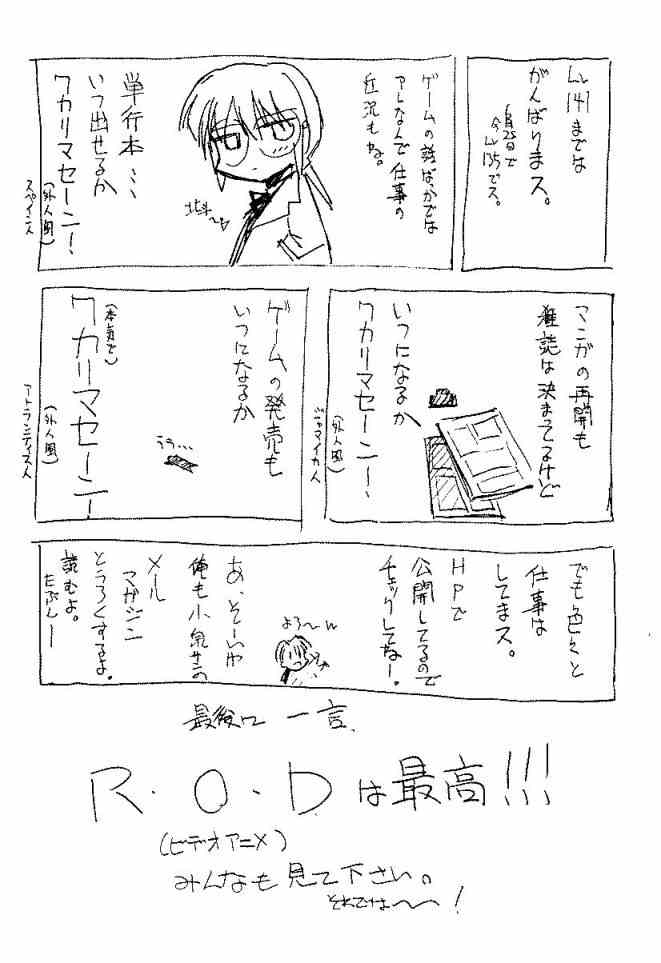 Lv141までは
がんばりまス。
6月25日で
今Lv135でス。
ゲームの話ばっかでは
アレなんで仕事の
近況もね。
単行本…
いつ出せるか
ワカリマセーン!
(外人風)
スペイン人
マンガの再開も
雑誌は決まってるけど
いつになるか
ワカリマセーン!
(外人風)
ジャマイカ人
ゲームの発売も
いつになるか
(本気で)
ワカリマセーン!
(外人風)
アトランティス人
うう…
でも色々と
仕事は
してまス。
HPで
公開してるので
チェックしてねー。
よろ〜ん
あ、そーいや
俺も小泉サンの
メル
マガジン
とうろくするよ。
読むよ。
たぶんー
最後に一言、
R・O・Dは最高!!!
(ビデオアニメ)
みんなも見て下さい。
それでは〜〜!